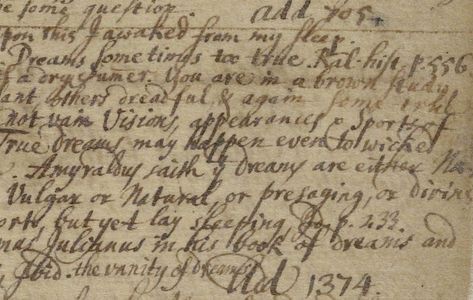 some question. add 705.
upon this I awaked from my sleep.
Dreams sometimes too true. Nal. hist. p. 556
of a dry sumer. You are in a brown study
others dreadful & again some true
not vain Visions, appearances & Sports of
True dreams may happen even to wicked
Amyraldus saith yt dreams are either
Vulgar or Natural, or presaging, or divine
but yet lay sleeping, p. 233.
Julianus in his book of dreams and
Ibid. the vanity of dreams Add 1374.